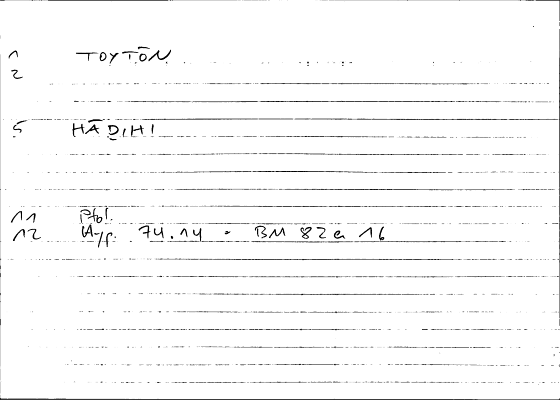 1 TOYTŌN
2
5 HĀḌIHI
11 Ptol.
12 Hyp. 74.14 = BM 82a 16